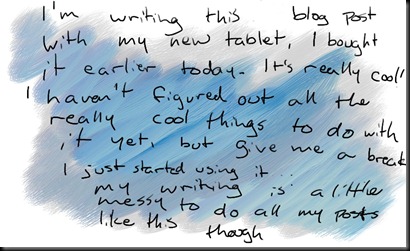 I'm writing this blog post
with my new tablet, I bought
it earlier today. It's really cool!
I haven't figured out all the
really cool things to do with
it yet, but give me a break
I just started using it..
my writing is a little
messy to do all my posts
like this though